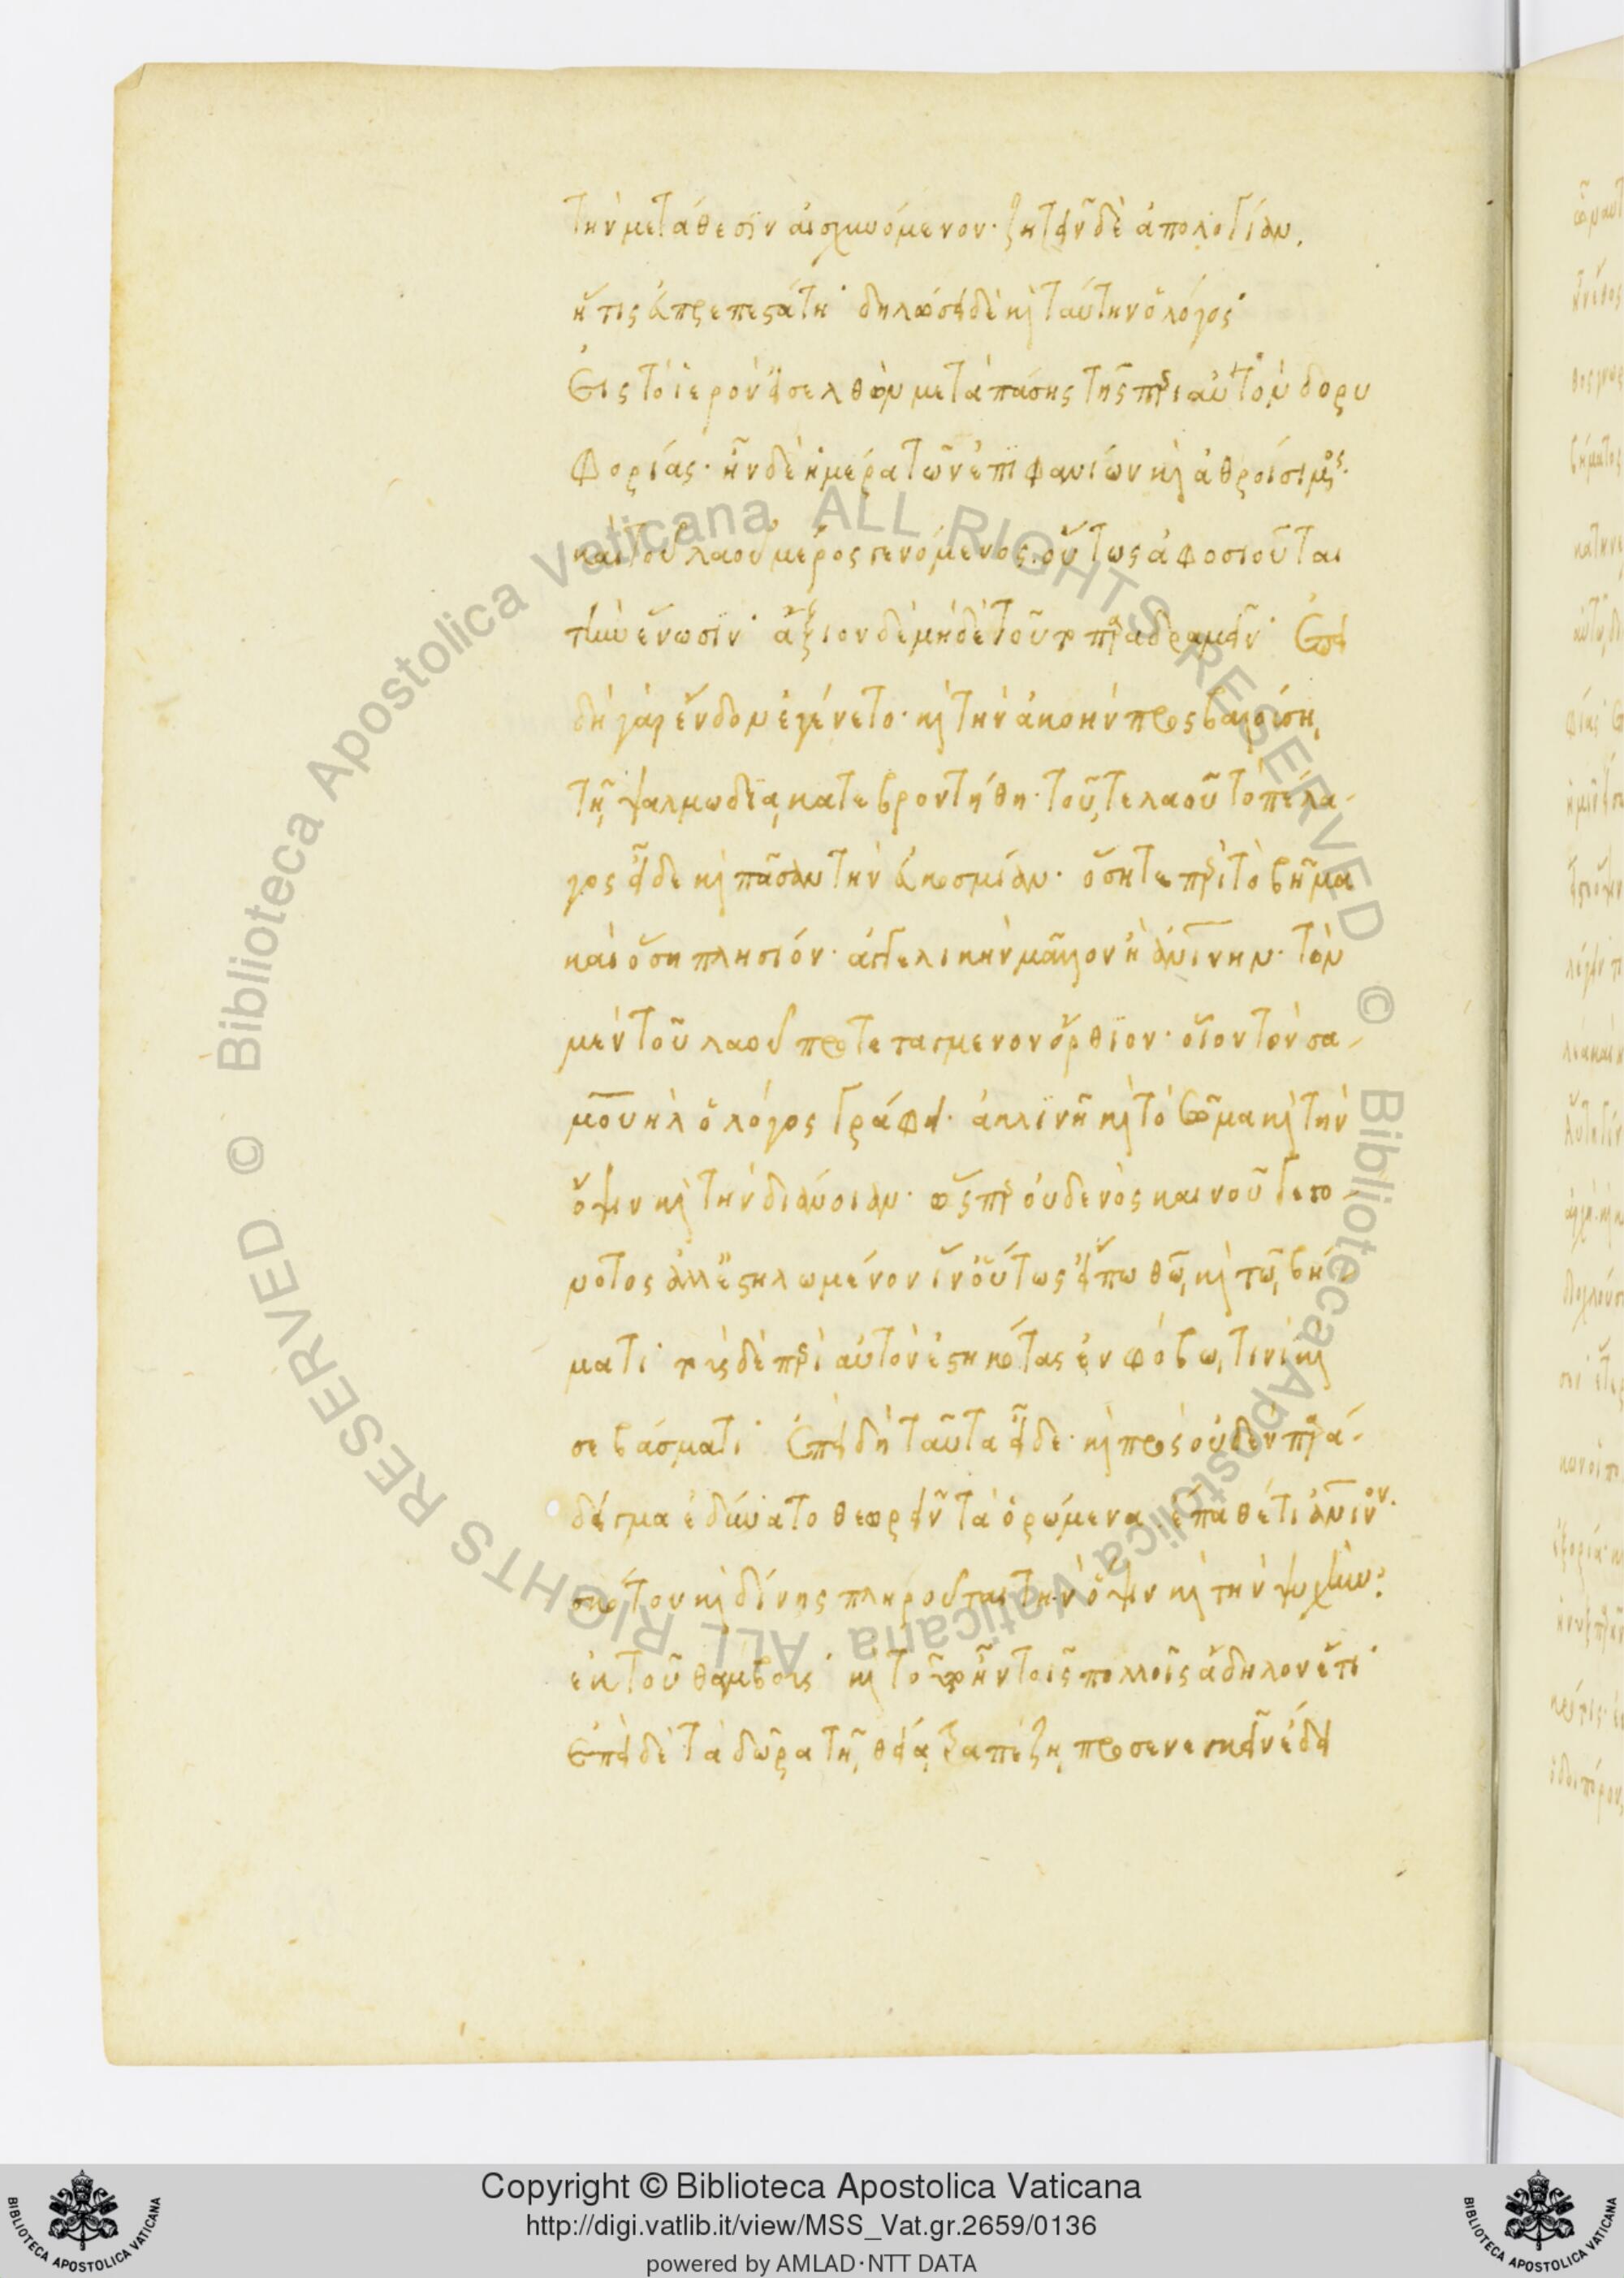 τὴν μετάθεσϊν αἰσχυνόμενον· ζητεῖν δὲ ἀπολογίαν.
ἥτις εὐπρεπεστάτη· δηλώσει δὲ κ(αὶ) ταύτην ὁ λόγος·
Εἰς τὸ ἱερὸν εἰσελθὼν μετὰ πάσης τῆς περὶ αὐτὸν δορυ
φορίας· ἦν δὲ ἡμέρα τῶν ἐπιφανίων κ(αὶ) ἀθροίσιμος·
καὶ τοῦ λαοῦ μέρος γενόμενος· οὕτως ἀφοσιοῦται
τὴν ἕνωσϊν· ἄξιον δὲ μηδὲ τοῦτο παραδραμεῖν· Ἐπεὶ
δὴ γὰρ ἔνδον ἐγένετο· κ(αὶ) τὴν ἀκοὴν προσβαλούση,
τῆ, ψαλμωδία, κατεβροντήθη· τοῦ, τε λαοῦ τὸ πέλα-
γος εἶδε κ(αὶ) πᾶσαν τὴν εὐκοσμίαν· ὅση τε περὶ τὸ βῆμα
καὶ ὅση πλησιόν· ἀγγελικὴν μᾶλλον ἢ ἀνίνην· τὸν
μὲν τοῦ λαοῦ προτεταγμενον ὄρθϊον· οἷον τὸν σα-
μουὴλ ὁ λόγος γράφει· ἀκλϊνῆ κ(αὶ) τὸ σῶμα κ(αὶ) τὴν
ὄψιν κ(αὶ) τὴν διάνοιαν· ὥσπερ οὐδενὸς καινοῦ γεγο-
νότος ἀλλ' ἐστηλωμένον ἵν' οὕτως εἴπω θῶ, κ(αὶ) τῶ, βή-
ματι· τοὺς δὲ περὶ αὐτὸν ἑστηκότας ἐν φόβω, τινὶ κ(αὶ)
σεβάσματι· Ἐπειδὴ ταῦτα εἶδε· κ(αὶ) πρὸς οὐδὲν παρά-
δειγμα ἐδύνατο θεωρεῖν τὰ ὁρώμενα· ἔπαθέ τι ἀνινον.
σκότου κ(αὶ) δίνης πληροῦται τὴν ὄψιν κ(αὶ) τὴν ψυχὴν·
ἐκ τοῦ θάμβους· κ(αὶ) τοῦτο ἦν τοῖς πολλοῖς ἄδηλον ἔτι·
Ἐπεὶ δὲ τὰ δῶρα τῆ, θεία, τραπέζη, προσενεγκεῖν ἔδει